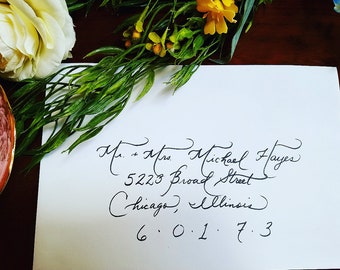 Mr. + Mrs. Michael Hayes
5223 Broad Street
Chicago, Illinois
6 · 0 · 1 · 7 · 3